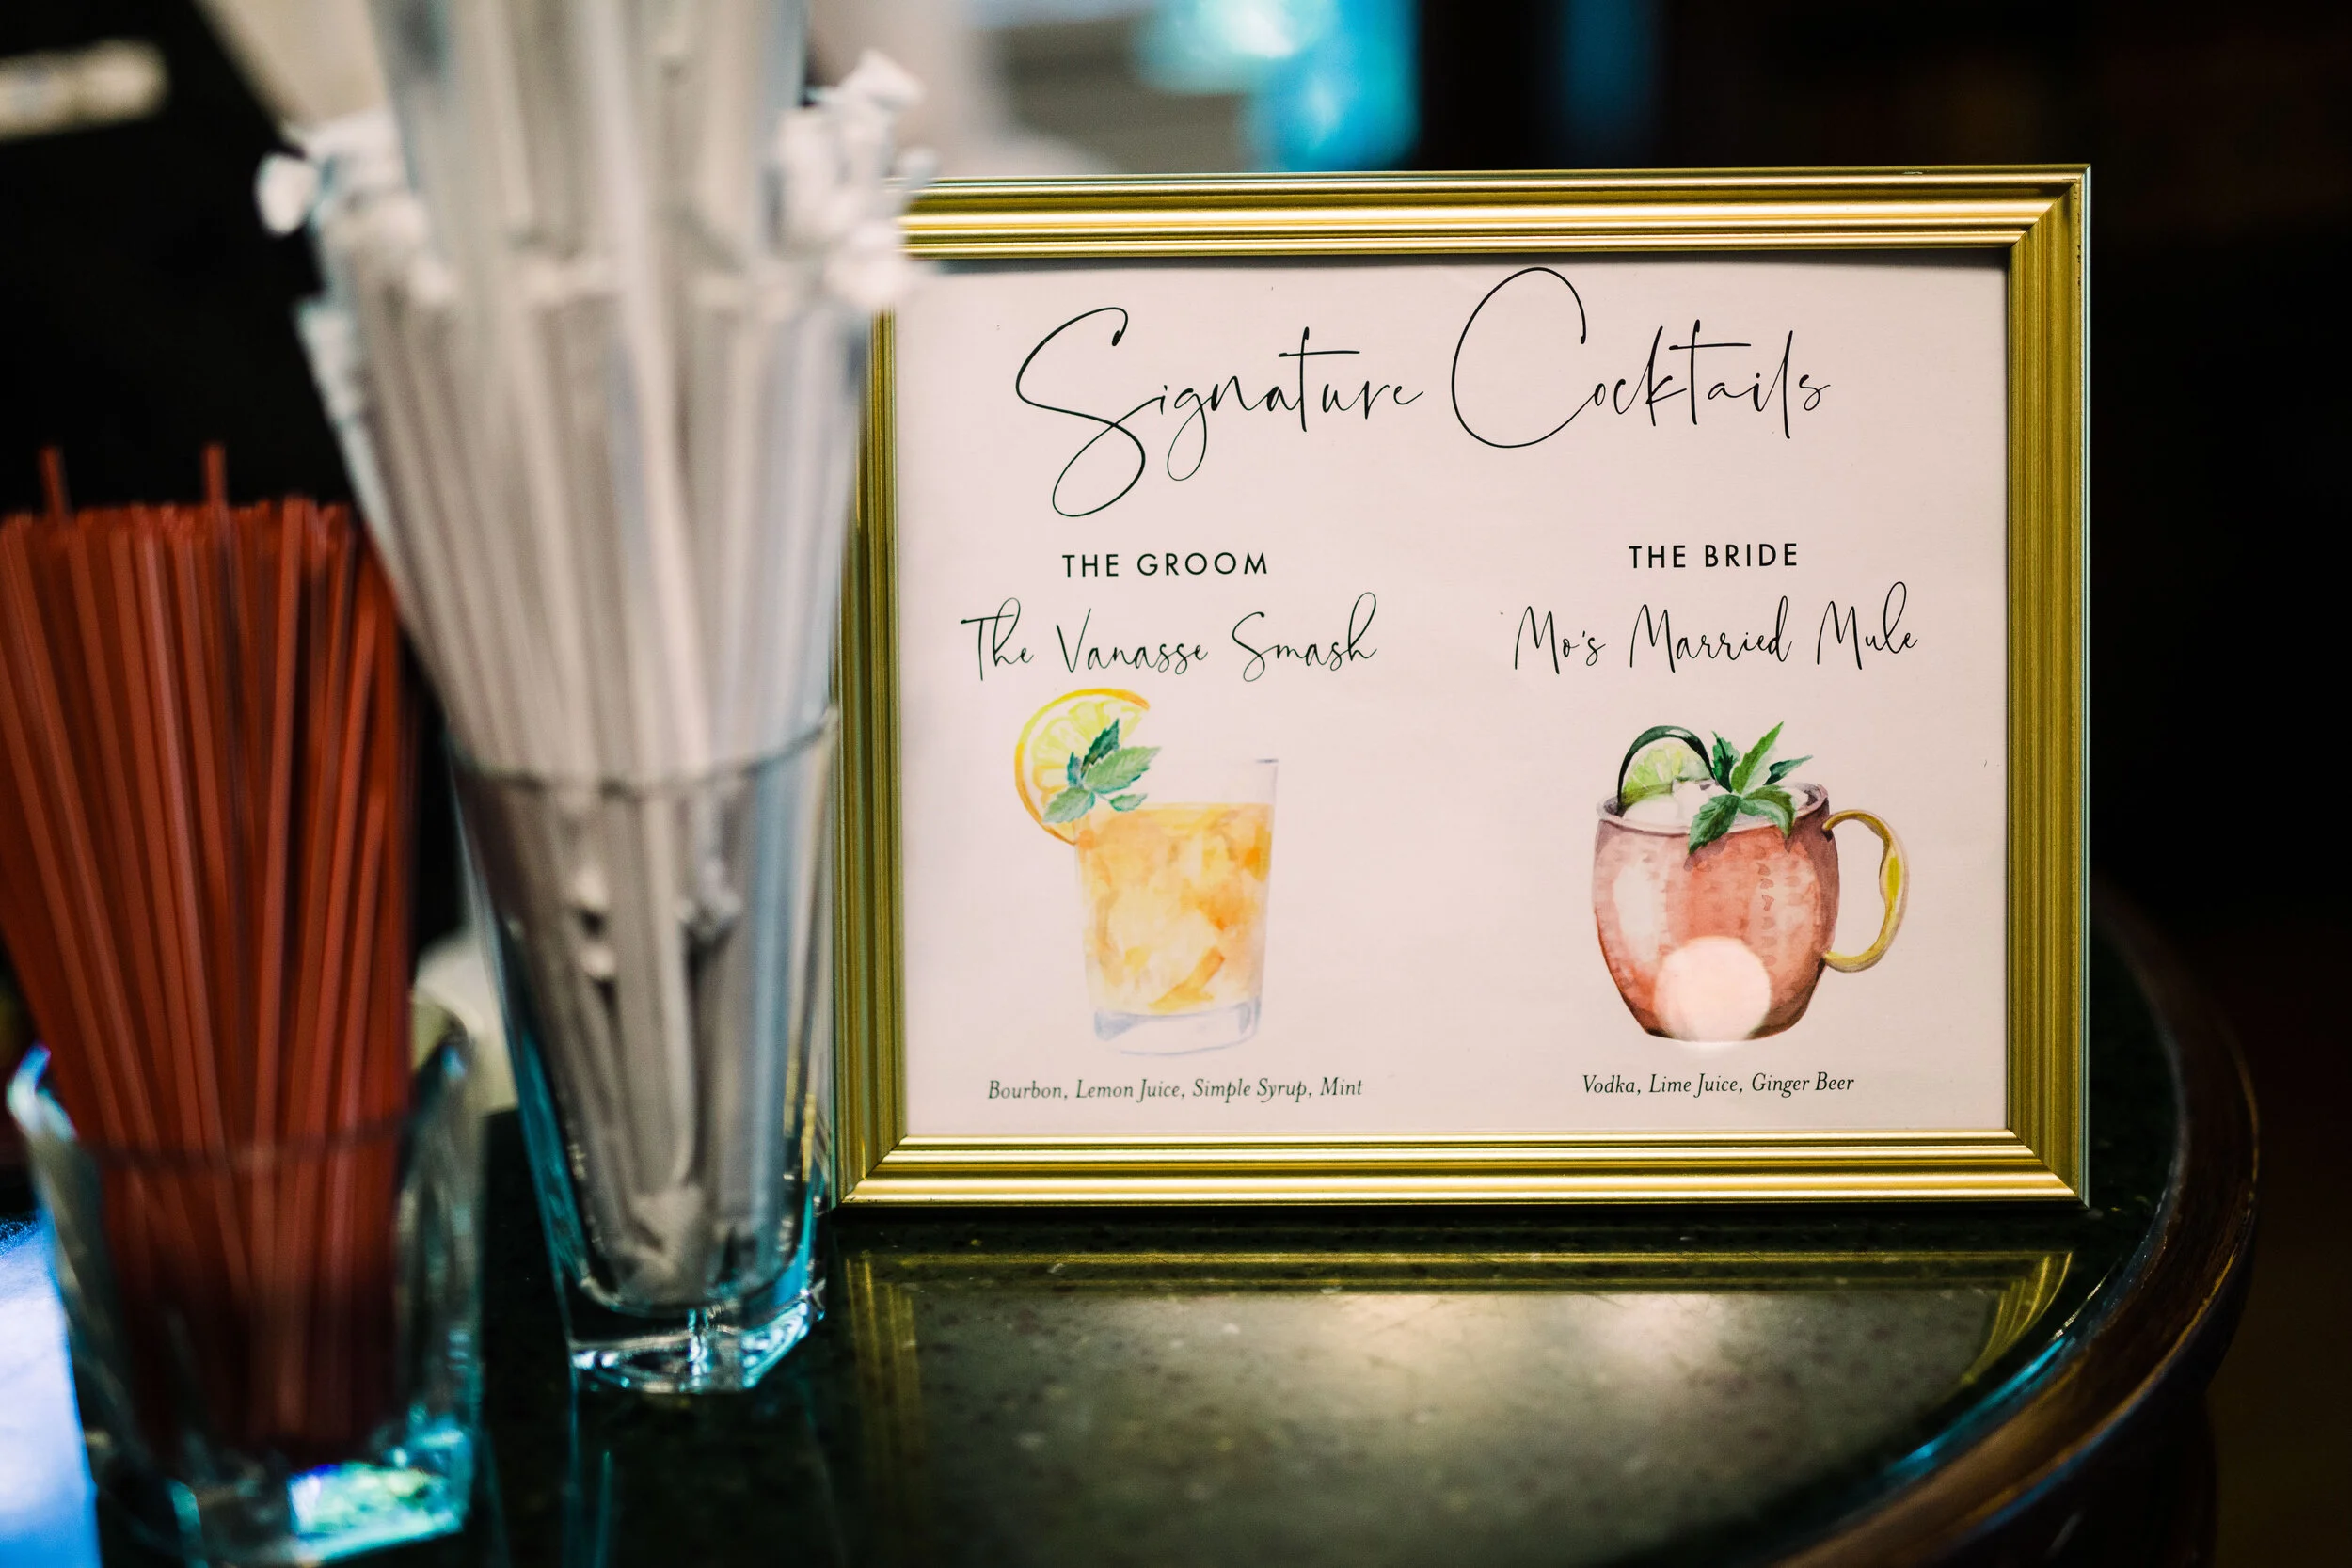 Signature Cocktails
THE GROOM
The Vanasse Smash
Bourbon, Lemon Juice, Simple Syrup, Mint
THE BRIDE
Mo's Married Mule
Vodka, Lime Juice, Ginger Beer